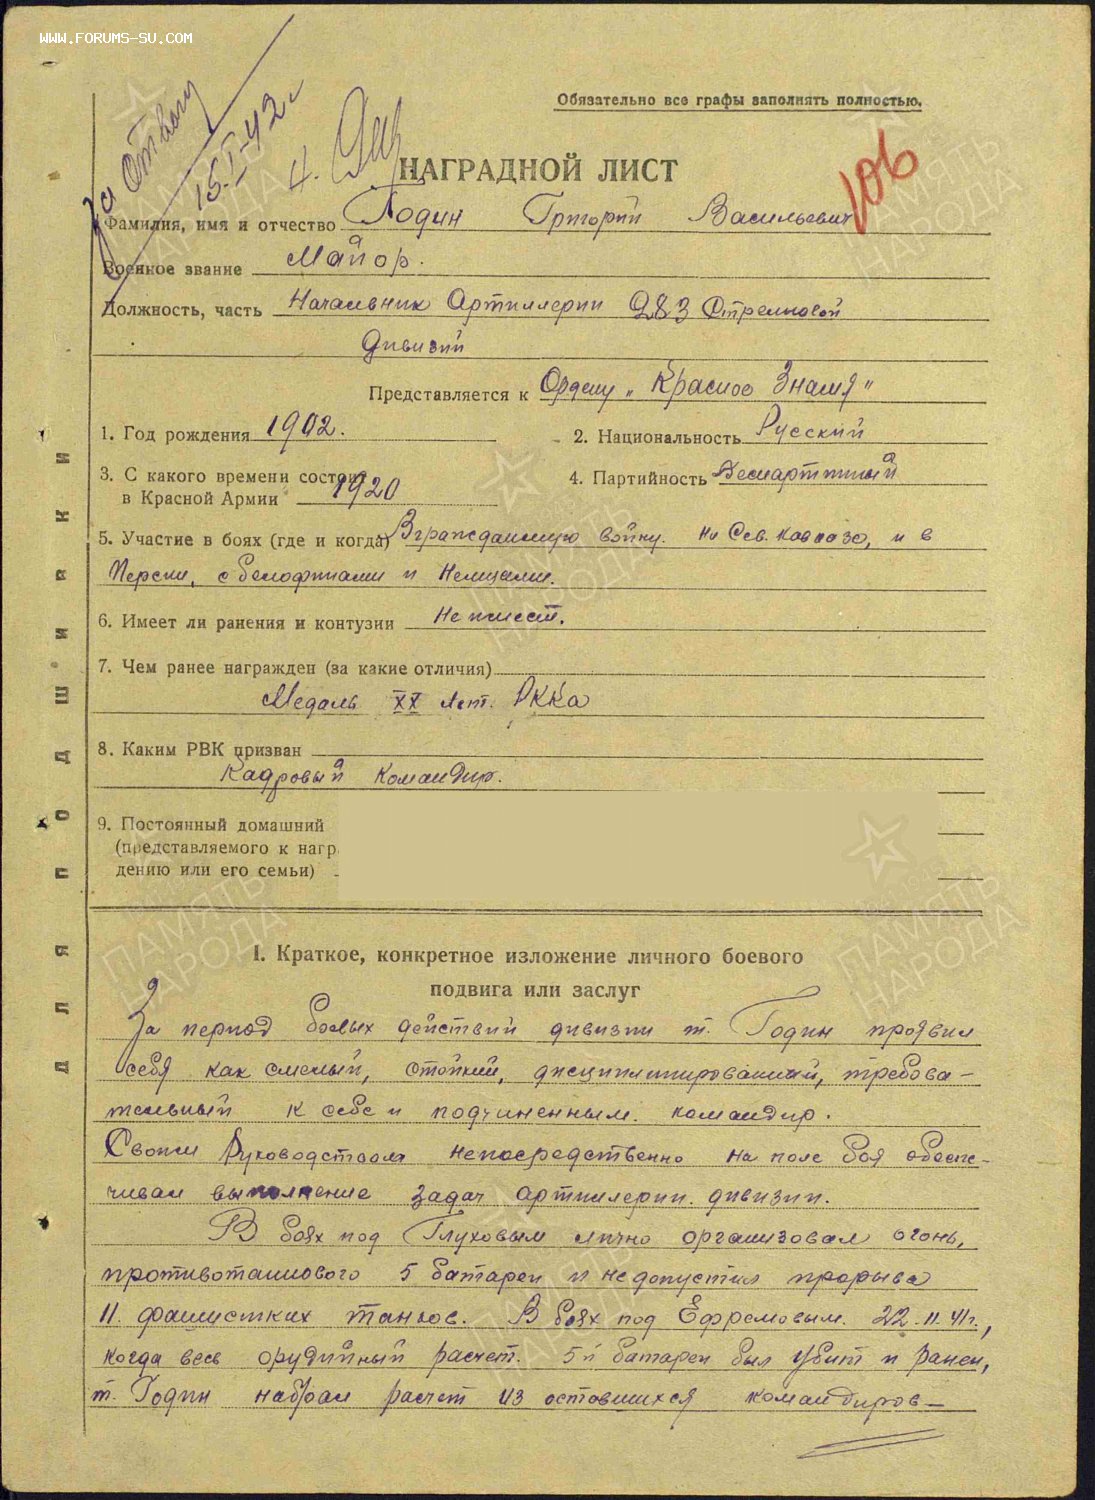 WWW.FORUMS-SU.COM
За Отвагу
15.I-42г
Обязательно все графы заполнять полностью.
НАГРАДНОЙ ЛИСТ
106
Фамилия, имя и отчество Годин Григорий Васильевич
Военное звание Майор.
Должность, часть Начальник Артиллерии 283 Стрелковой
дивизии
Представляется к Ордену „Красное Знамя"
1. Год рождения 1902.
2. Национальность Русский
3. С какого времени состоит
в Красной Армии 1920
4. Партийность Беспартийный
5. Участие в боях (где и когда) В гражданскую войну. На Сев. Кавказе, и в
Персии, с белофинами и Немцами.
6. Имеет ли ранения и контузии Не имеет.
7. Чем ранее награжден (за какие отличия)
Медаль XX лет. РККА
8. Каким РВК призван
Кадровый командир.
9. Постоянный домашний
(представляемого к нагр
дению или его семьи)
ДЛЯ ПОДШИВКИ
I. Краткое, конкретное изложение личного боевого
подвига или заслуг
За период боевых действий дивизии т. Годин проявил
себя как смелый, стойкий, дисциплинированный, требова-
тельный к себе и подчиненным. командир.
Своим Руководством непосредственно на поле боя обеспе-
чивал выполнение задач артиллерии. дивизии.
В боях под Глуховым лично организовал огонь,
противотанкового 5 батареи и недопустил прорыва
11. фашистких танков. В боях под Ефремовым. 22.11.41г.,
когда весь орудийный расчет. 5й батареи был убит и ранен,
т. Годин набрал расчет из оставшихся командиров-
ПАМЯТЬ НАРОДА